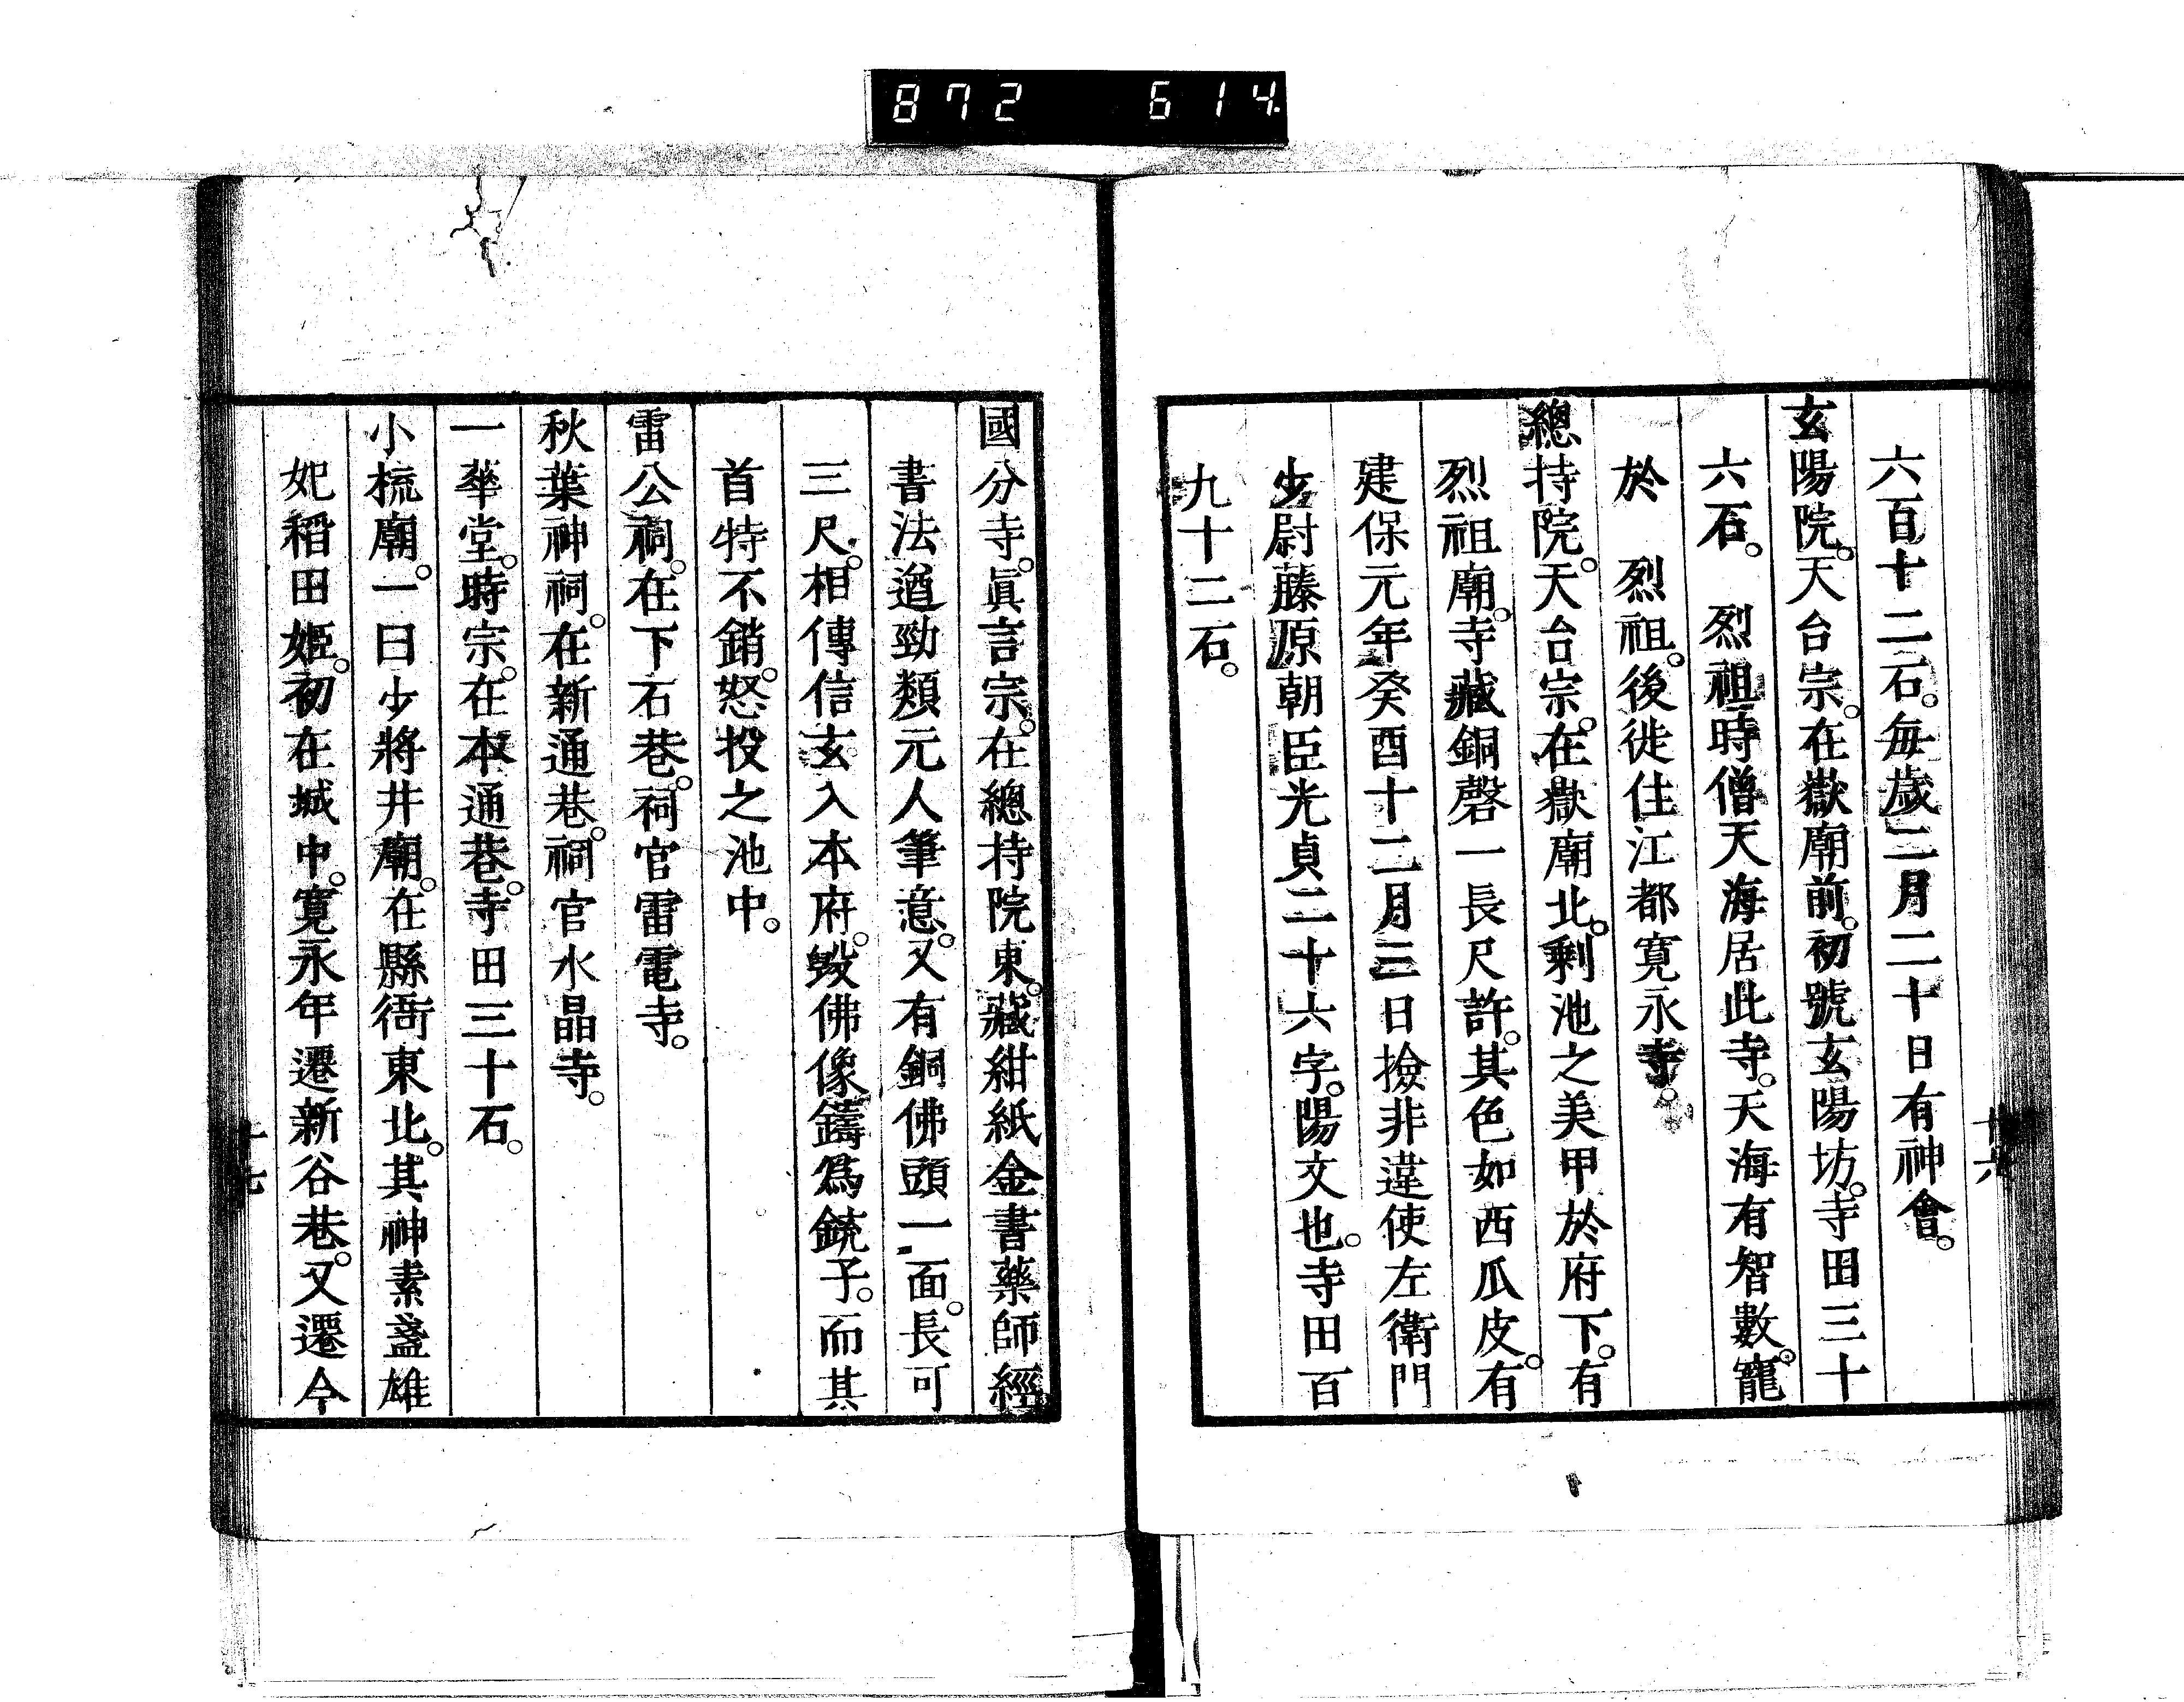 872 614
十六
六百十二石。毎歲二月二十日有神會。
玄陽院。天台宗。在嶽廟前。初號玄陽坊。寺田三十
六石。 烈祖時僧天海居此寺。天海有智數。寵
於 烈祖。後徙住江都寛永寺。
總持院。天台宗。在嶽廟北。剩池之美甲於府下。有
烈祖廟。寺藏銅磬一長尺許。其色如西瓜皮。有
建保元年癸酉十二月三日撿非違使左衛門
少尉藤原朝臣光貞二十六字。陽文也。寺田百
九十二石。
國分寺。眞言宗。在總持院東。藏紺紙金書藥師經
書法遒勁類元人筆意。又有銅佛頭一面。長可
三尺。相傳信玄入本府。毀佛像鑄爲銃子。而其
首特不銷。怒投之池中。
雷公祠。在下石巷。祠官雷電寺。
秋葉神祠。在新通巷。祠官水晶寺。
一華堂。時宗。在本通巷。寺田三十石。
小梳廟。一曰少將井廟。在縣衙東北。其神素盞雄
妃稻田姫。初在城中。寛永年遷新谷巷。又遷今
十七